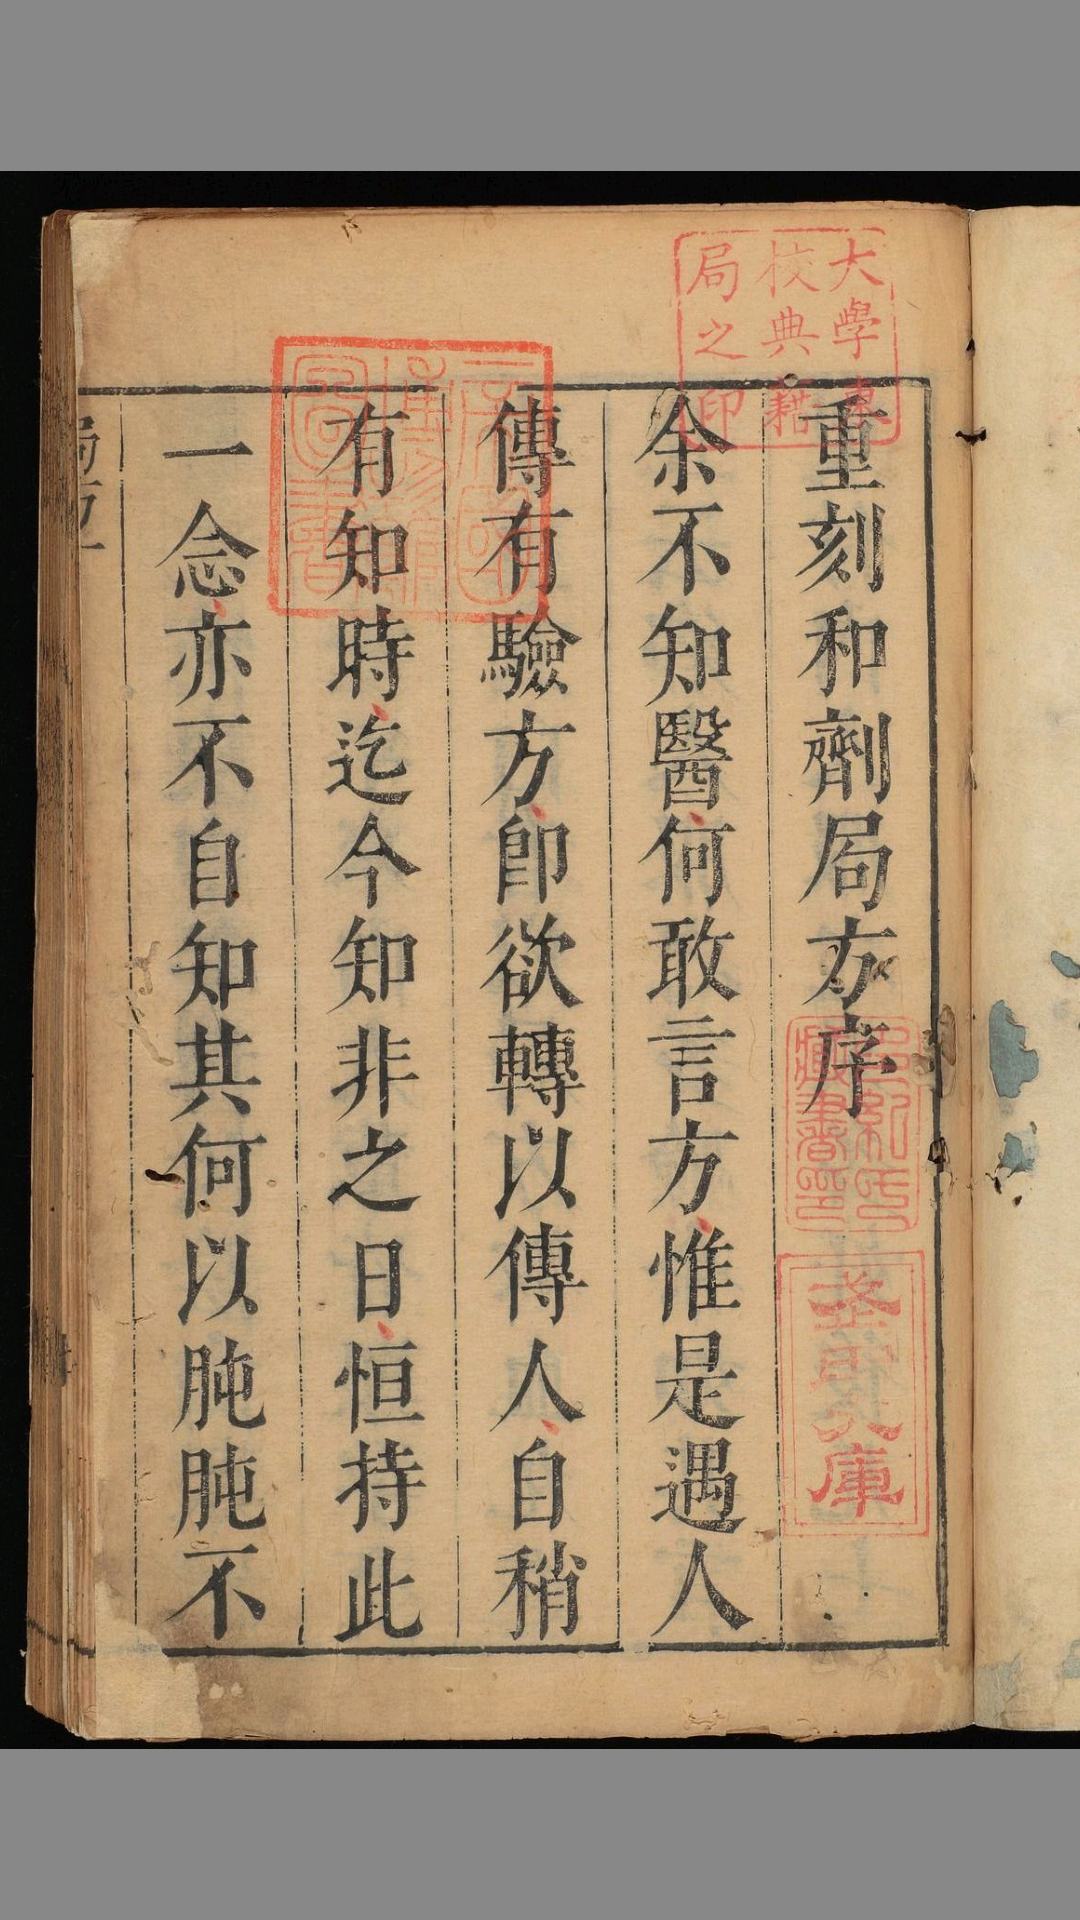 重刻和劑局方序
余不知醫何敢言方惟是遇人
傳有驗方卽欲轉以傳人自稍
有知時迄今知非之日恒持此
一念亦不自知其何以肫肫不
大學東
校典籍
局之印
藏書印
局方